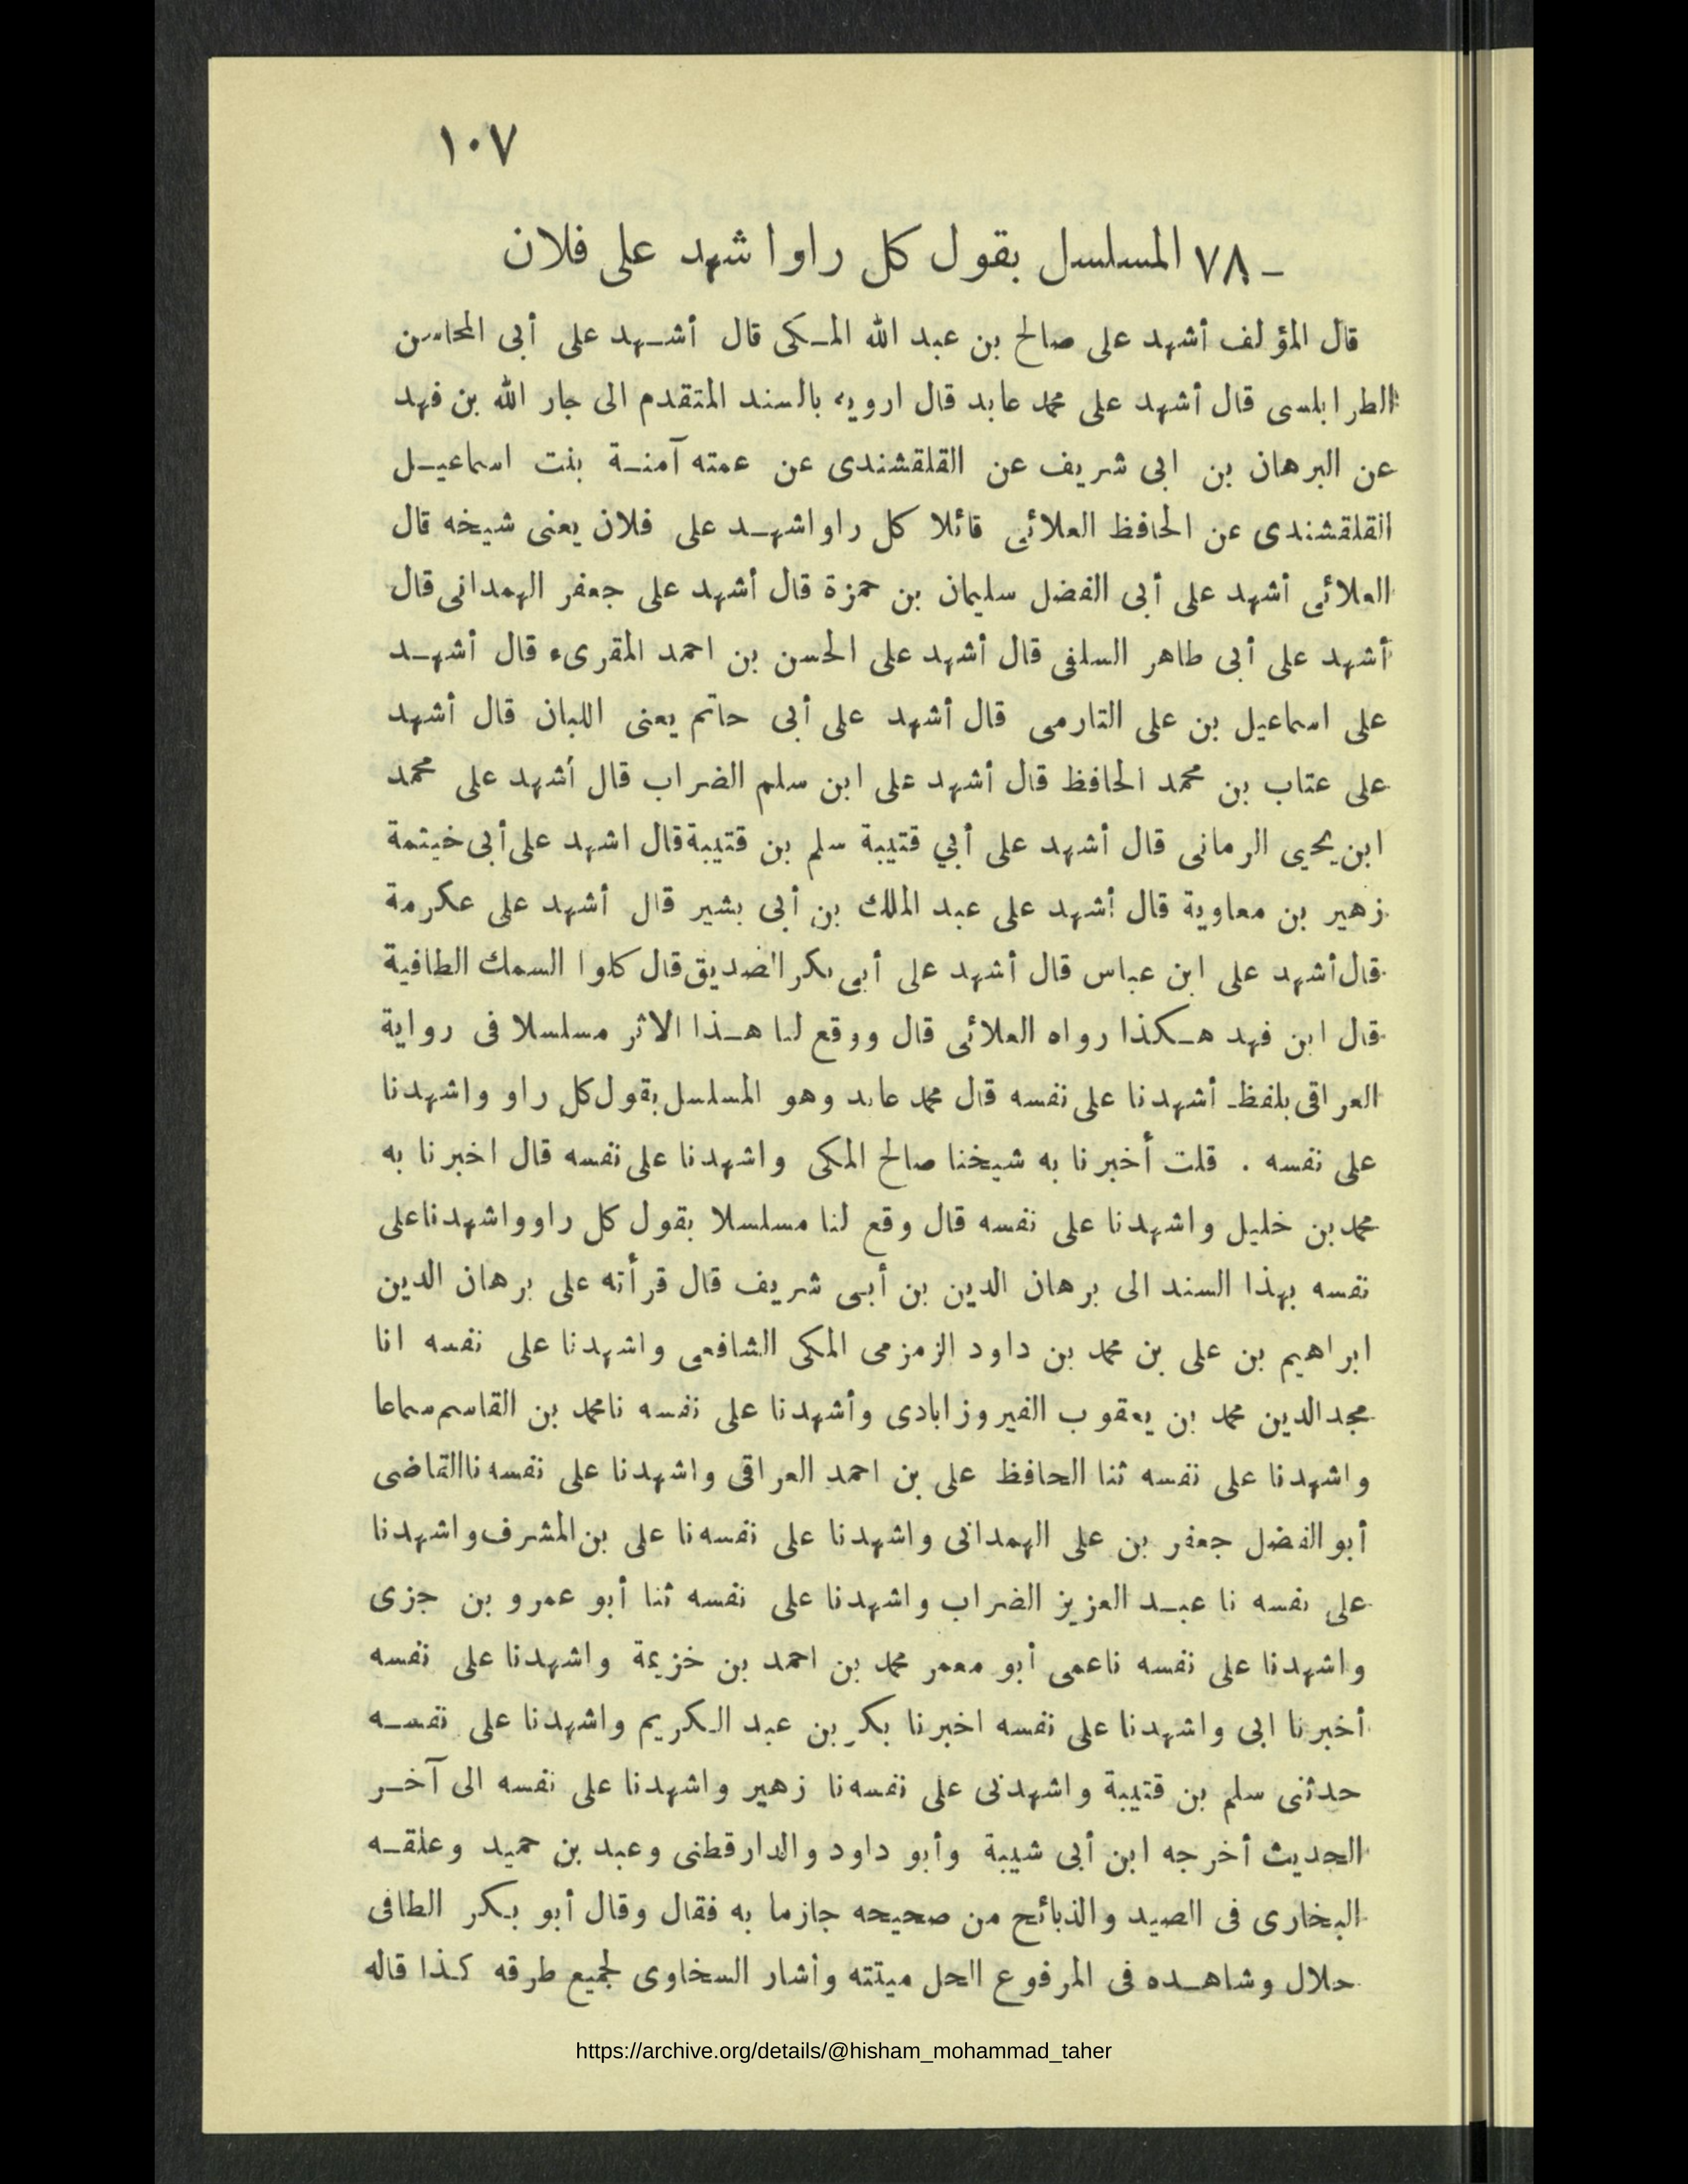 ١٠٧
ـ ٧٨ المسلسل بقول كل راوا شهد على فلان
قال المؤلف أشهد على صالح بن عبد الله المكى قال أشهد على أبى المحاسن
الطرابلسى قال أشهد على محمد عابد قال ارويه بالسند المتقدم الى جار الله بن فهد
عن البرهان بن ابى شريف عن القلقشندى عن عمته آمنة بنت اسماعيل
القلقشندى عن الحافظ العلائى قائلا كل راواشهد على فلان يعنى شيخه قال
العلائى أشهد على أبى الفضل سليمان بن حمزة قال أشهد على جعفر الهمدانى قال
أشهد على أبى طاهر السلفى قال أشهد على الحسن بن احمد المقرىء قال أشهد
على اسماعيل بن على التارمى قال أشهد على أبى حاتم يعنى اللبان قال أشهد
على عتاب بن محمد الحافظ قال أشهد على ابن سلم الضراب قال أشهد على محمد
ابن يحيى الرمانى قال أشهد على أبي قتيبة سلم بن قتيبة قال اشهد على أبى خيتمة
زهير بن معاوية قال أشهد على عبد الملك بن أبى بشير قال أشهد على عكرمة
قال أشهد على ابن عباس قال أشهد على أبى بكر الصديق قال كلوا السمك الطافية
قال ابن فهد هكذا رواه العلائى قال ووقع لنا هذا الاثر مسلسلا فى رواية
العراقى بلفظ أشهدنا على نفسه قال محمد عابد وهو المسلسل بقول كل راو واشهدنا
على نفسه . قلت أخبرنا به شيخنا صالح المكى واشهدنا على نفسه قال اخبرنا به
محمد بن خليل واشهدنا على نفسه قال وقع لنا مسلسلا بقول كل راوواشهدنا على
نفسه بهذا السند الى برهان الدين بن أبى شريف قال قرأته على برهان الدين
ابراهيم بن على بن محمد بن داود الزمزمى المكى الشافعى واشهدنا على نفسه انا
مجد الدين محمد بن يعقوب الفيروزابادى وأشهدنا على نفسه نا محمد بن القاسم سماعا
واشهدنا على نفسه ثنا الحافظ على بن احمد العراقى واشهدنا على نفسه نا القاضى
أبو الفضل جعفر بن على الهمدانى واشهدنا على نفسه نا على بن المشرف واشهدنا
على نفسه نا عبد العزيز الضراب واشهدنا على نفسه ثنا أبو عمرو بن جزى
واشهدنا على نفسه نا عمى أبو معمر محمد بن احمد بن خزيمة واشهدنا على نفسه
أخبرنا ابى واشهدنا على نفسه اخبرنا بكر بن عبد الكريم واشهدنا على نفسه
حدثنى سلم بن قتيبة واشهدنى على نفسه نا زهير واشهدنا على نفسه الى آخر
الحديث أخرجه ابن أبى شيبة وأبو داود والدارقطنى وعبد بن حميد وعلقه
البخارى فى الصيد والذبائح من صحيحه جازما به فقال وقال أبو بكر الطافى
حلال وشاهده فى المرفوع الحل ميتته وأشار السخاوى لجميع طرقه كذا قاله
https://archive.org/details/@hisham_mohammad_taher